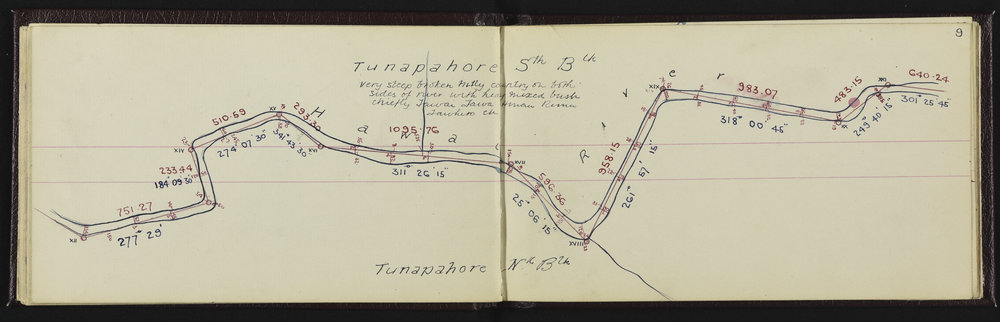 9
Tunapahore Sth Blk
very steep broken hilly country on both
sides of river with heavy mixed bush
chiefly Tawai Tawa Hinau Rimu
Tawhero etc
H a w a i River
XII
751.27
277° 29'
233.44
184° 09' 30"
XIV
510.69
274° 07' 30"
XV
293.30
341° 43' 30"
XVI
1095.76
311° 26' 15"
XVII
596.36
25° 06' 15"
XVIII
958.15
261° 57' 15"
XIX
983.07
318° 00' 45"
483.15
249° 40' 15"
XXI
640.24
301° 25' 45"
Tunapahore Nth Blk